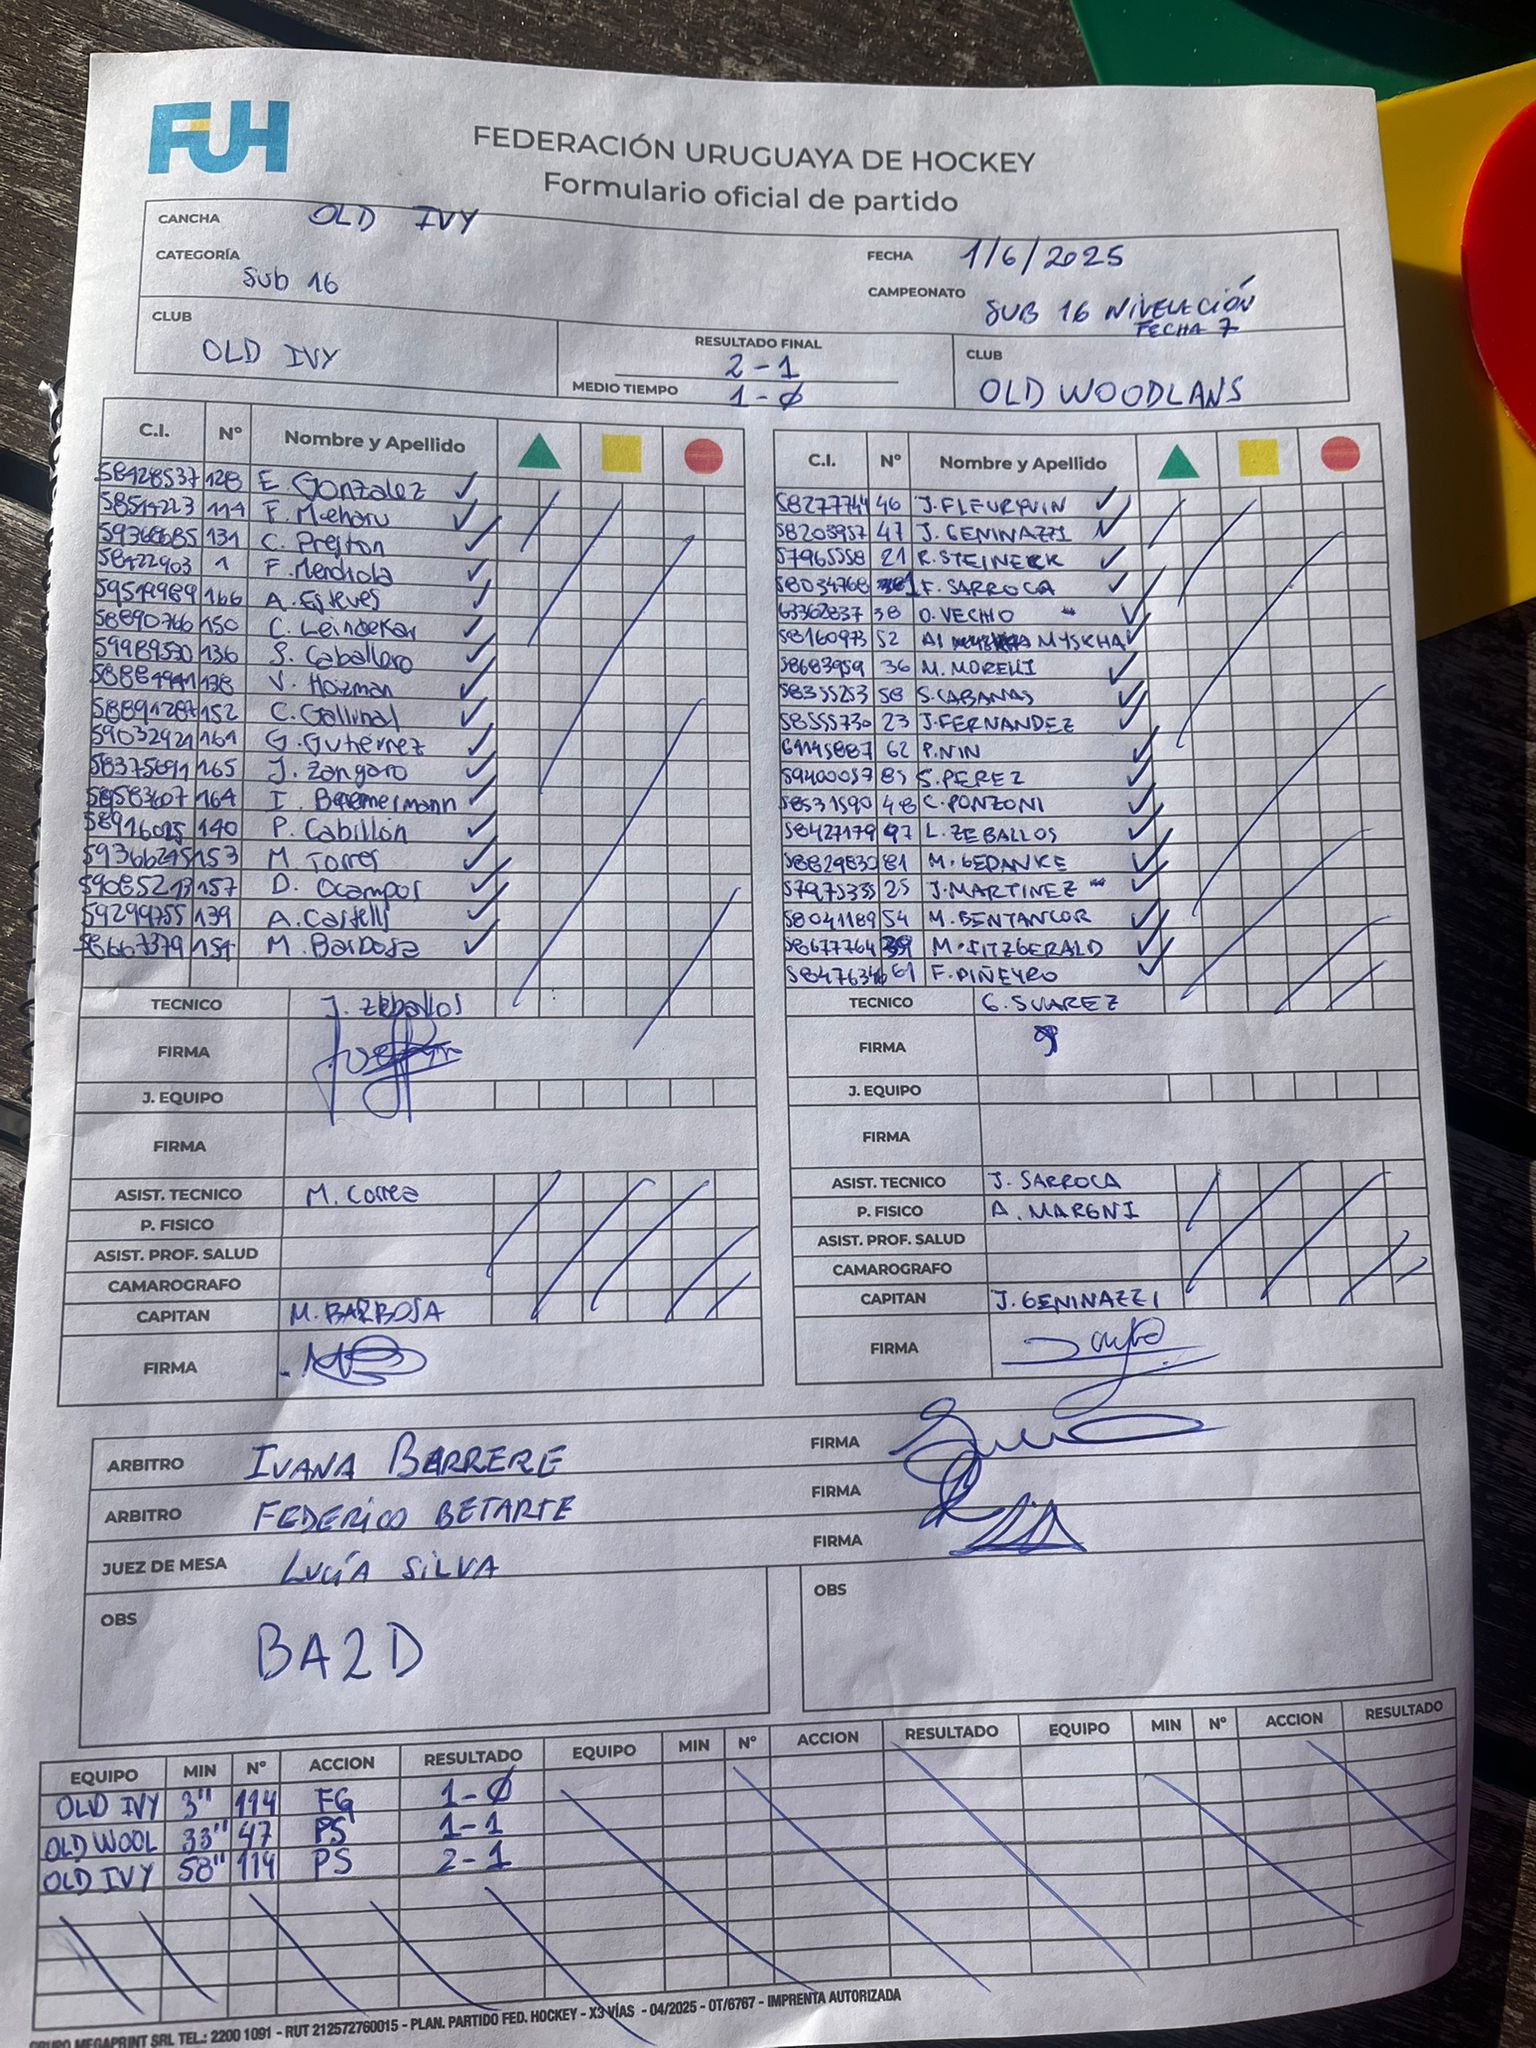 FUH
FEDERACIÓN URUGUAYA DE HOCKEY
Formulario oficial de partido
CANCHA OLD IVY
CATEGORÍA Sub 16
FECHA 1/6/2025
CAMPEONATO SUB 16 NIVELACIÓN
FECHA 7
CLUB OLD IVY
RESULTADO FINAL 2-1
MEDIO TIEMPO 1-0
CLUB OLD WOODLANS
C.I. Nº Nombre y Apellido
58428537 128 E. Gonzalez
114
131 C. Preston
58422903 1 F. Mendiola
166 A. Esteves
58890766 150
136 S. Caballero
138 V. Hozman
58891287 152 C. Gallinal
59032421 161 G. Gutierrez
165 J. Zangaro
164
140 P. Cabillón
59366245 153 M. Torres
157 D. Ocampos
59299755 139
58667379 M. Barbosa
TECNICO J. Zeballos
FIRMA
J. EQUIPO
FIRMA
ASIST. TECNICO M. Correa
P. FISICO
ASIST. PROF. SALUD
CAMAROGRAFO
CAPITAN M. BARBOSA
FIRMA
C.I. Nº Nombre y Apellido
58277744 46
58203957 47 J. GENINAZZI
57965558 21
58034768 F. SARROCA
63362837 38 O. VECHIO
58160973 52 MYSKHA
58683959 36 M. MORELLI
58355253 58 S. CABANAS
58555730 23 J. FERNANDEZ
61145887 62 P. NIN
59400057 85 S. PEREZ
58531590 48 C. PONZONI
58427179 97 L. ZEBALLOS
58829830 81 M. GEDANKE
57975335 25 J. MARTINEZ
58041189 54 M. BENTANCOR
58677764 39 M. FITZGERALD
61 F. PIÑEYRO
TECNICO G. SUAREZ
FIRMA
J. EQUIPO
FIRMA
ASIST. TECNICO J. SARROCA
P. FISICO A. MARGNI
ASIST. PROF. SALUD
CAMAROGRAFO
CAPITAN J. GENINAZZI
FIRMA
ARBITRO IVANA BARRERE FIRMA
ARBITRO FEDERICO BETARTE FIRMA
JUEZ DE MESA LUCÍA SILVA FIRMA
OBS BA2D
OBS
EQUIPO MIN Nº ACCION RESULTADO EQUIPO MIN Nº ACCION RESULTADO EQUIPO MIN Nº ACCION RESULTADO
OLD IVY 3" 114 FG 1-0
OLD WOOL 33" 47 PS 1-1
OLD IVY 58" 114 PS 2-1
GRUPO MEGAPRINT SRL TEL.: 2200 1091 - RUT 212572760015 - PLAN. PARTIDO FED. HOCKEY - X3 VÍAS - 04/2025 - OT/6767 - IMPRENTA AUTORIZADA